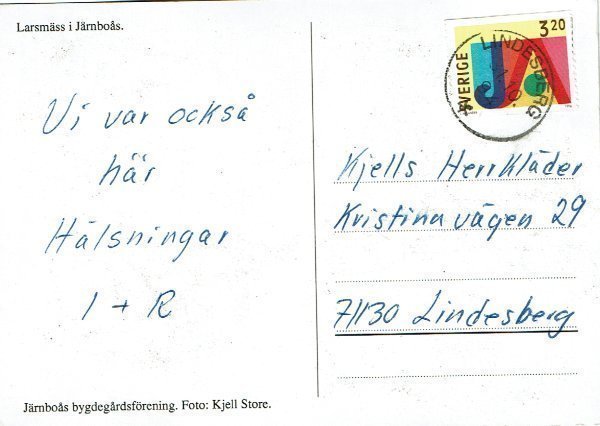 Larsmäss i Järnboås.
Vi var också
här
Hälsningar
I + R
Järnboås bygdegårdsförening. Foto: Kjell Store.
SVERIGE
3 20
JA
LINDESBERG
Kjells Herrkläder
Kristinavägen 29
71130 Lindesberg